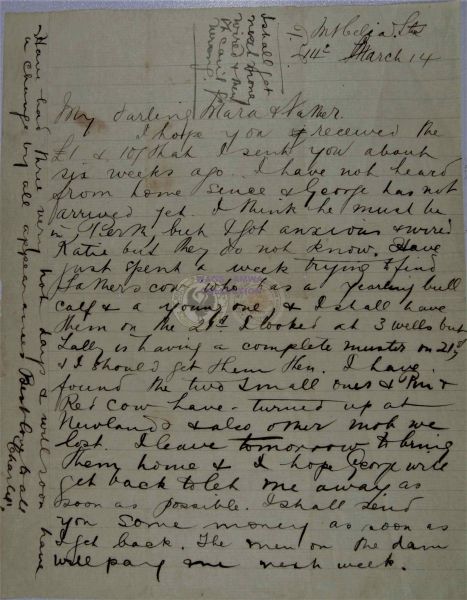 Mt Celia Stn
14th March 14
I shall get
next time
wired & they
can't go
wrong.
My darling Mara & Father.
I hope you received the
£1 & 10/ that I sent you about
six weeks ago. I have not heard
from home since & George has not
arrived yet. I think he must be
in Perth, but I got anxious & wired
Katie but they do not know. Have
just spent a week trying to find
Fathers cow who has a yearling bull
calf & a young one, & I shall have
them on the I looked at 3 wells but
Lally is having a complete muster on 21st
& I should get them then. I have
found the two small ones & &
Red cow have turned up at
Newlands & also other mob we
lost. I leave tomorrow to bring
them home & I hope George will
get back to let me away as
soon as possible. I shall send
you some money as soon as
I get back. The men on the dam
will pay me next week.
Have had three very hot days & will soon have
a change by all appearances Best love to all
Charlie